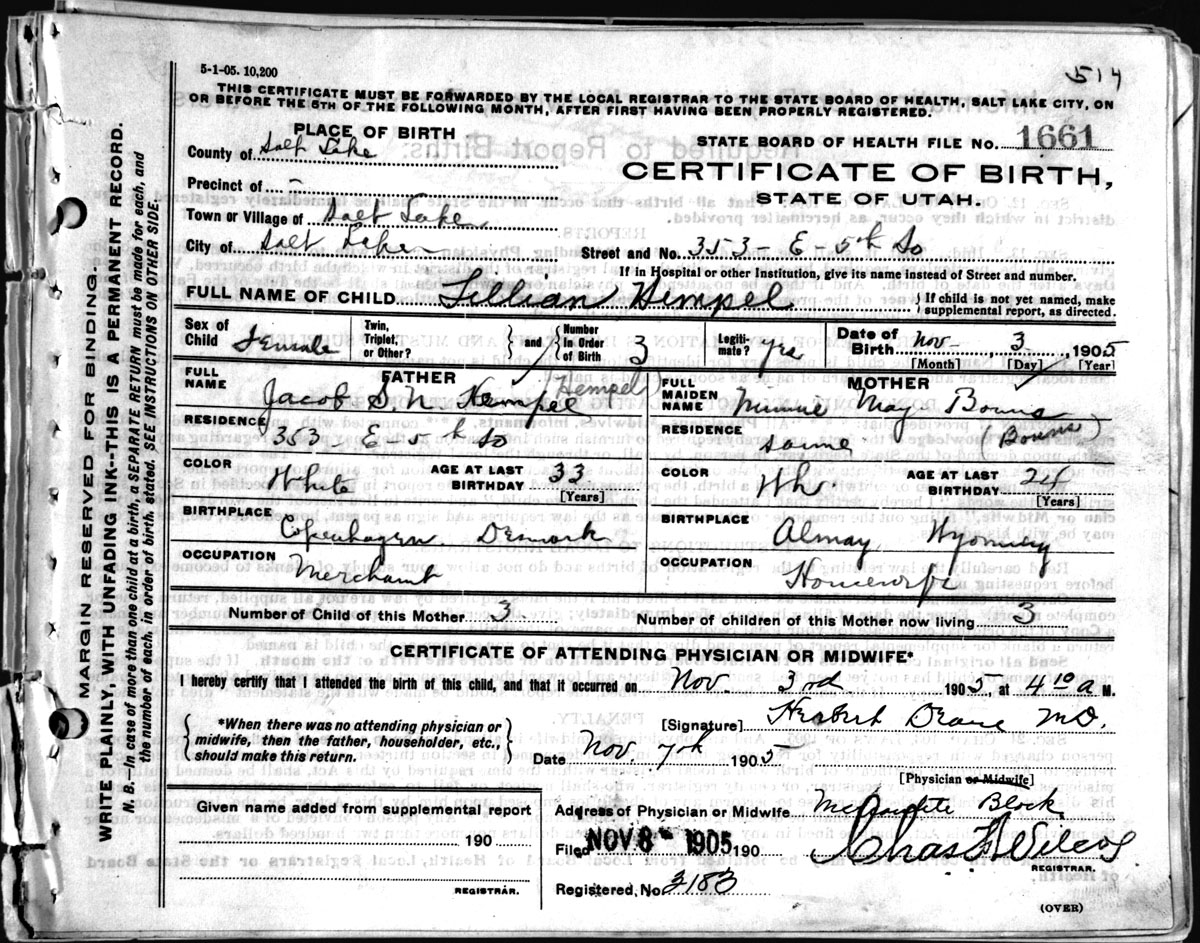 5-1-05. 10,200
514
THIS CERTIFICATE MUST BE FORWARDED BY THE LOCAL REGISTRAR TO THE STATE BOARD OF HEALTH, SALT LAKE CITY, ON
OR BEFORE THE 5TH OF THE FOLLOWING MONTH, AFTER FIRST HAVING BEEN PROPERLY REGISTERED.
PLACE OF BIRTH
STATE BOARD OF HEALTH FILE No. 1661
County of Salt Lake
CERTIFICATE OF BIRTH,
Precinct of -
STATE OF UTAH.
Town or Village of Salt Lake
City of Salt Lake Street and No. 353 - E - 5th So
If in Hospital or other Institution, give its name instead of Street and number.
FULL NAME OF CHILD Lillian Hempel } If child is not yet named, make supplemental report, as directed.
Sex of Child Female Twin, Triplet, or Other? } and { Number in Order of Birth 3 Legitimate? yes Date of Birth Nov - 3 1905
[Month] [Day] [Year]
FATHER
FULL NAME Jacob S. N. Hempel (Hempel)
RESIDENCE 353 E - 5th So
COLOR White AGE AT LAST BIRTHDAY 33 [Years]
BIRTHPLACE Copenhagen Denmark
OCCUPATION Merchant
MOTHER
FULL MAIDEN NAME Minnie May Bowns (Bowns)
RESIDENCE Same
COLOR Wh. AGE AT LAST BIRTHDAY 24 [Years]
BIRTHPLACE Almay, Wyoming
OCCUPATION Housewife
Number of Child of this Mother 3 Number of children of this Mother now living 3
CERTIFICATE OF ATTENDING PHYSICIAN OR MIDWIFE*
I hereby certify that I attended the birth of this child, and that it occurred on Nov. 3rd 1905, at 4 10 a M.
{ *When there was no attending physician or midwife, then the father, householder, etc., should make this return. }
[Signature] Herbert Deane MD.
Date Nov. 7th 1905
[Physician or Midwife]
Given name added from supplemental report
190
REGISTRAR.
Address of Physician or Midwife Block
Filed NOV 8 - 1905 190 Chas F Wilcox
REGISTRAR.
Registered, No. 2183
(OVER)
MARGIN RESERVED FOR BINDING.
WRITE PLAINLY, WITH UNFADING INK--THIS IS A PERMANENT RECORD.
N. B. In case of more than one child at a birth, a SEPARATE RETURN must be made for each, and
the number of each, in order of birth, stated. SEE INSTRUCTIONS ON OTHER SIDE.